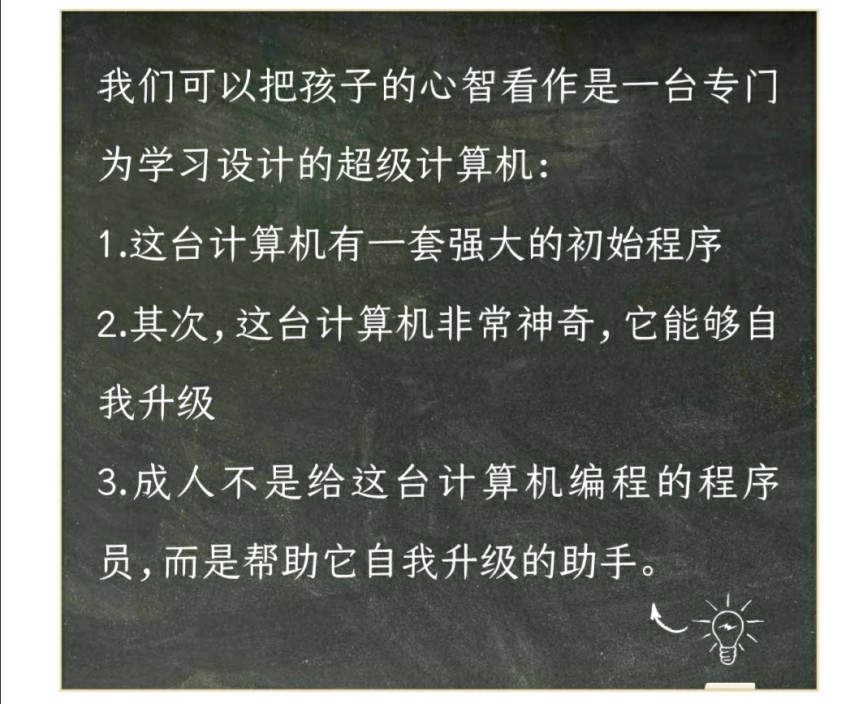 我们可以把孩子的心智看作是一台专门
为学习设计的超级计算机:
1.这台计算机有一套强大的初始程序
2.其次,这台计算机非常神奇,它能够自
我升级
3.成人不是给这台计算机编程的程序
员,而是帮助它自我升级的助手。